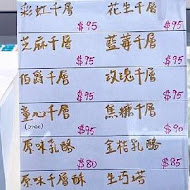 彩虹千層 $95
花生千層 $95
芝麻千層 $95
藍莓千層 $95
伯爵千層 $95
玫瑰千層 $95
童心千層 $95
焦糖千層 $90
原味乳酪 $80
金桔乳酪 $85
原味千層酥
生巧塔